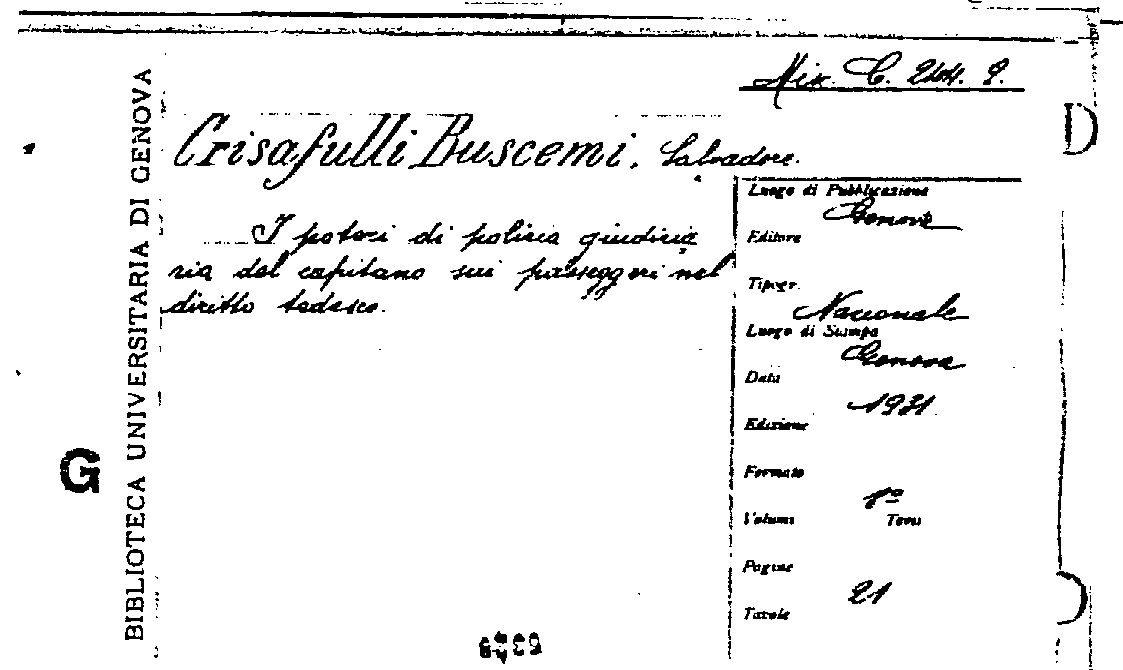 Mix. C. 244. 9.
D
BIBLIOTECA UNIVERSITARIA DI GENOVA
Crisafulli Buscemi, Salvadore.
I poteri di polizia giudizia
ria del capitano sui passeggeri nel
diritto tedesco.
Luogo di Pubblicazione
Genova
Editore
Tipogr.
Nazionale
Luogo di Stampa
Genova
Data
1931
Edizione
Formato
8º
Volumi Tomi
Pagine
21
Tavole
G